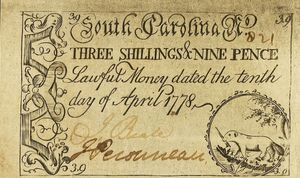 39 South Carolina No 39
821
THREE SHILLINGS & NINE PENCE
Lawful Money dated the tenth
day of April 1778.
J Peronneau
39 39